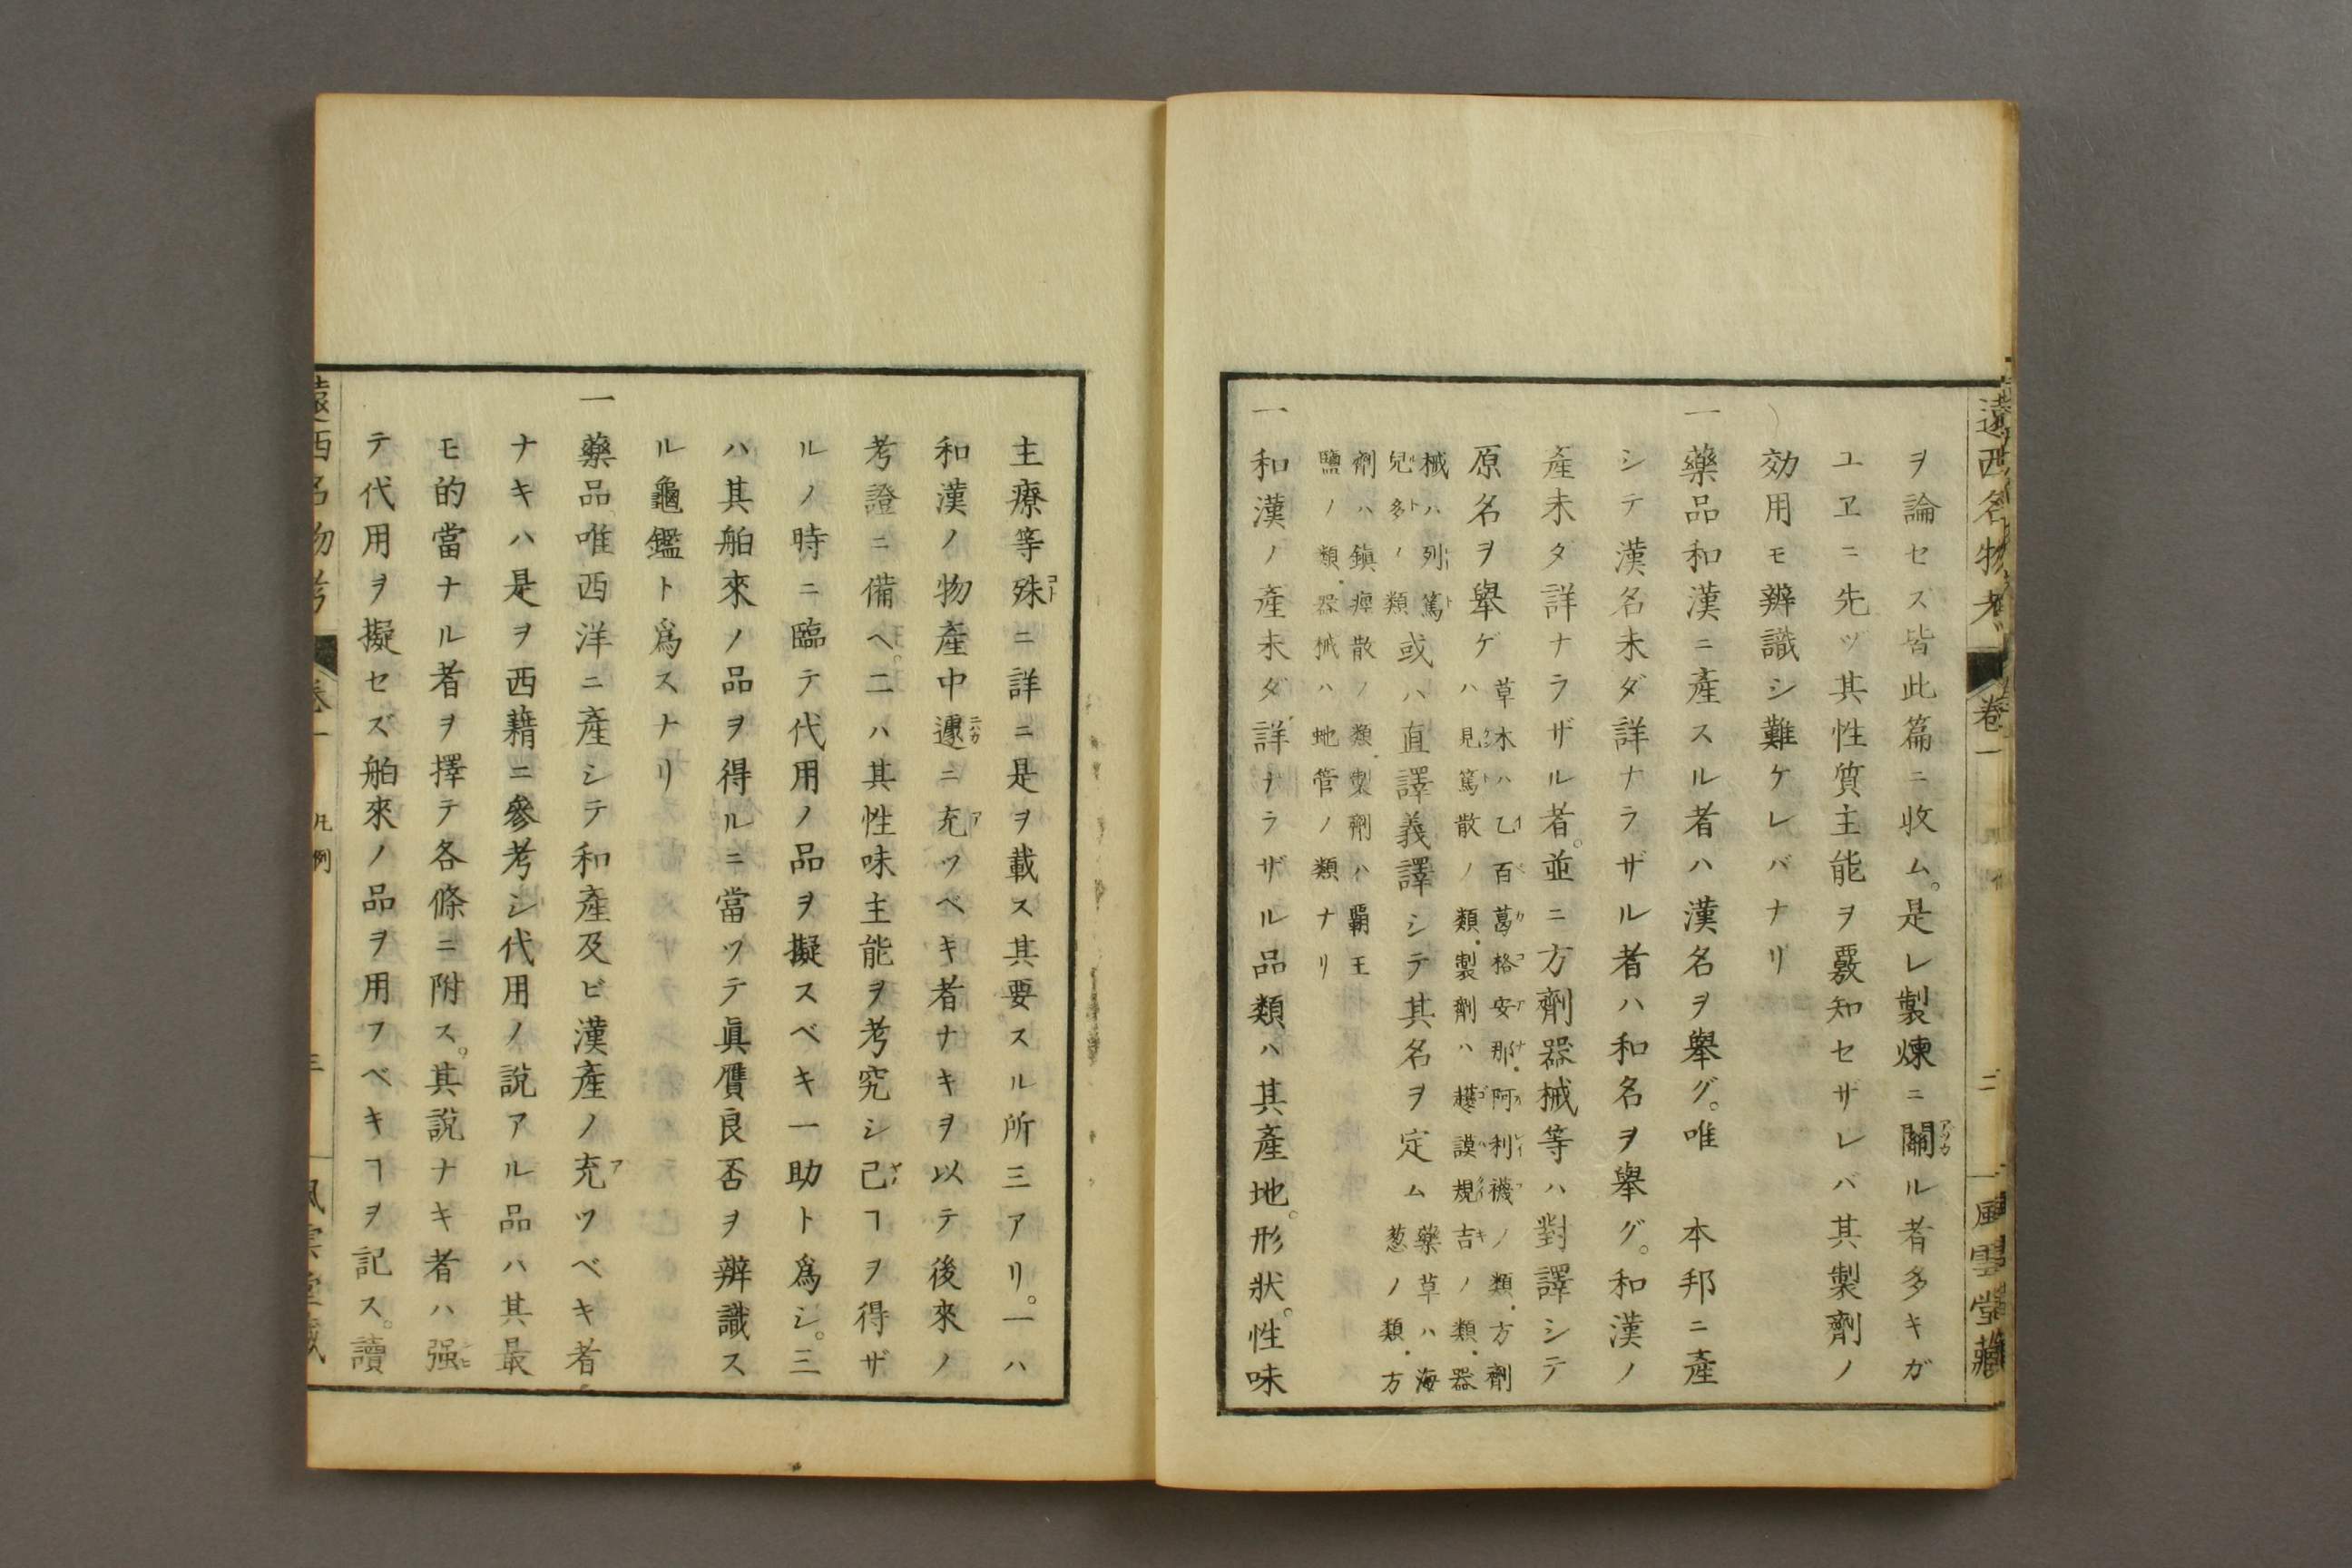 遠西名物考
卷一
二
風雲堂藏
ヲ論セス皆此篇ニ收ム。是レ製煉ニ關ル者多キガ
ユヱニ先ヅ其性質主能ヲ覈知セザレバ其製劑ノ
効用モ辨識シ難ケレバナリ
一藥品和漢ニ產スル者ハ漢名ヲ舉グ。唯　本邦ニ產
シテ漢名未ダ詳ナラザル者ハ和名ヲ舉グ。和漢ノ
產未タ詳ナラザル者。並ニ方劑器械等ハ對譯シテ
原名ヲ舉ゲ
草木ハ乙百葛格安那。阿利襪ノ類。方劑
ハ見篤散ノ類。製劑ハ謨規吉ノ類。器
械ハ列篤
兒多ノ類
或ハ直譯義譯シテ其名ヲ定ム
藥草ハ海
葱ノ類。方
劑ハ鎮痙散ノ類。製劑ハ覇王
鹽ノ類。器械ハ蚮管ノ類ナリ
一和漢ノ產未ダ詳ナラザル品類ハ其產地。形狀。性味
主療等殊ニ詳ニ是ヲ載ス其要スル所三アリ。一ハ
和漢ノ物產中遽ニ充ツベキ者ナキヲ以テ後來ノ
考證ニ備ヘ。二ハ其性味主能ヲ考究シ已ヿヲ得ザ
ルノ時ニ臨テ代用ノ品ヲ擬スベキ一助ト爲シ。三
ハ其舶來ノ品ヲ得ルニ當ツテ眞贋良否ヲ辨識ス
ル龜鑑ト爲スナリ
一藥品唯西洋ニ產シテ和產及ビ漢產ノ充ツベキ者
ナキハ是ヲ西籍ニ參考シ代用ノ說アル品ハ其最
モ的當ナル者ヲ擇テ各條ニ附ス。其說ナキ者ハ强
テ代用ヲ擬セズ舶來ノ品ヲ用フベキヿヲ記ス。讀
遠西名物考
卷一
凡例
三
風雲堂藏